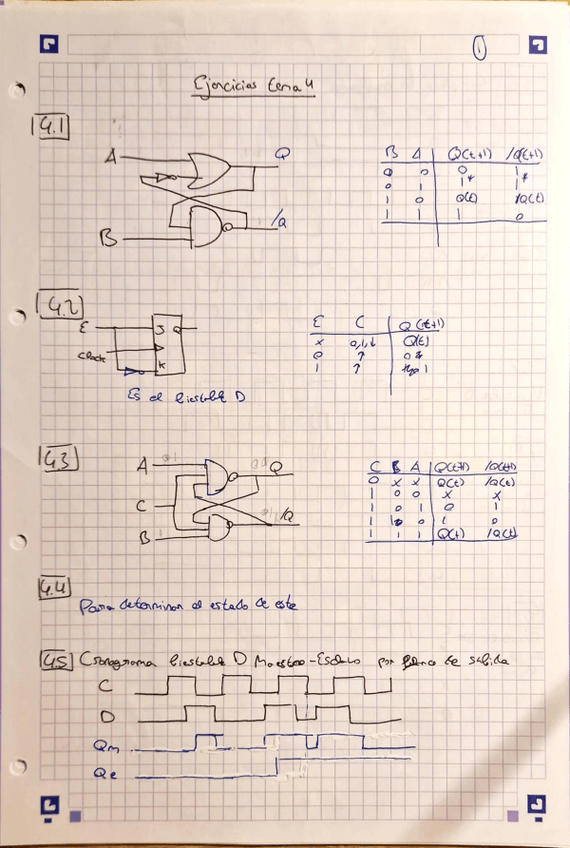 1
Ejercicios tema 4
4.1
A
Q
B
/Q
B A Q(t+1) /Q(t+1)
0 0 0 1
0 1 1* 1*
1 0 Q(t) /Q(t)
1 1 1 0
4.2
E
J Q
Clock
K
Es el biestable D
E C Q(t+1)
x 0,1,↓ Q(t)
0 ↑ 0
1 ↑ 1
4.3
A
Q
C
/Q
B
C B A Q(t+1) /Q(t+1)
0 x x Q(t) /Q(t)
1 0 0 x x
1 0 1 0 1
1 1 0 1 0
1 1 1 Q(t) /Q(t)
4.4
Para determinar el estado de este
4.5 Cronograma biestable D Maestro-Esclavo por flanco de subida
C
D
Qm
Qe